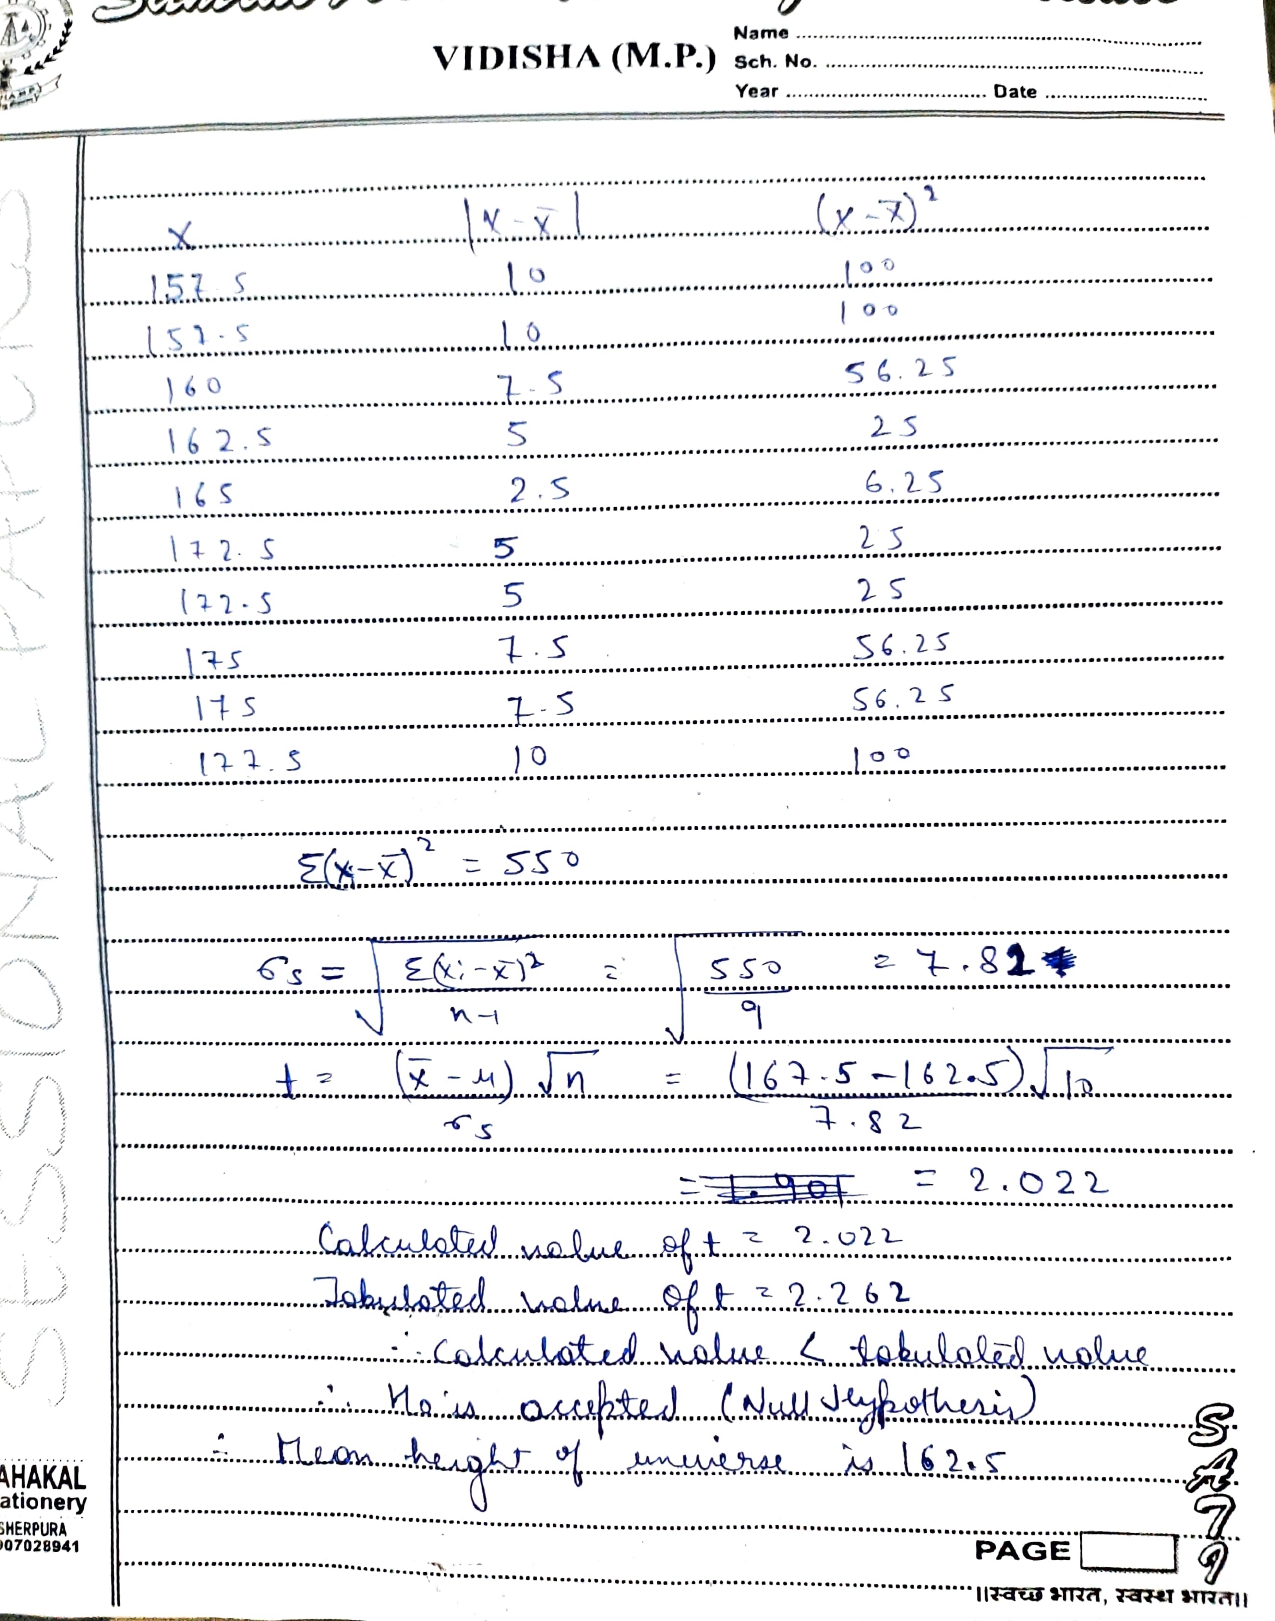 VIDISHA (M.P.)
Name
Sch. No.
Year Date
SESSIONAL PAPERS
X |X-x̄| (x-x̄)²
157.5 10 100
157.5 10 100
160 7.5 56.25
162.5 5 25
165 2.5 6.25
172.5 5 25
172.5 5 25
175 7.5 56.25
175 7.5 56.25
177.5 10 100
Σ(xᵢ-x̄)² = 550
σs = √(Σ(xᵢ-x̄)²/n-1) = √(550/9) = 7.82
t = (x̄-μ)√n/σs = (167.5-162.5)√10/7.82
= 2.022
Calculated value of t = 2.022
Tabulated value of t = 2.262
∴ Calculated value < tabulated value
∴ Ho is accepted (Null Hypothesis)
∴ Mean height of universe is 162.5
AHAKAL
ationery
SHERPURA
07028941
SA79
PAGE
।।स्वच्छ भारत, स्वस्थ भारत।।